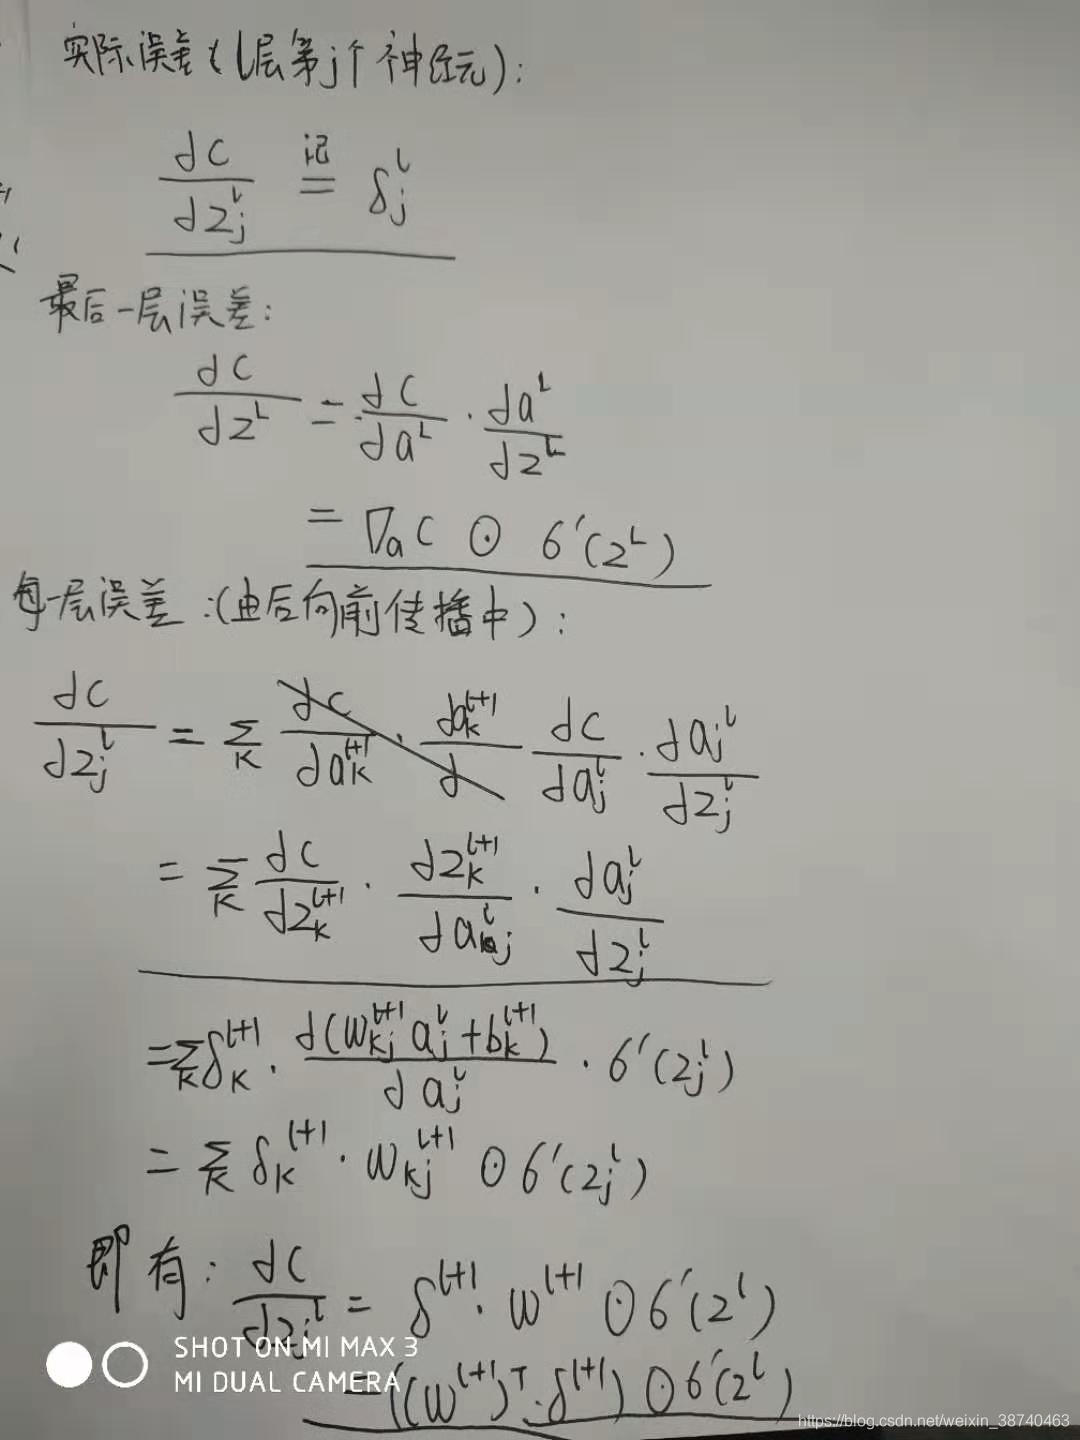 实际误差(l层第j个神经元):
dC/dz_j^l 记= δ_j^l
最后一层误差:
dC/dz^L = dC/da^L · da^L/dz^L
= ∇_a C ⊙ σ'(z^L)
每一层误差:(由后向前传播中):
dC/dz_j^l = Σ_k dC/da_k^{l+1} · da_k^{l+1}/d dC/da_j^l · da_j^l/dz_j^l
= Σ_k dC/dz_k^{l+1} · dz_k^{l+1}/da_j^l · da_j^l/dz_j^l
= Σ_k δ_k^{l+1} · d(w_kj^{l+1} a_j^l + b_k^{l+1})/da_j^l · σ'(z_j^l)
= Σ_k δ_k^{l+1} · w_kj^{l+1} ⊙ σ'(z_j^l)
即有: dC/dz_j^l = δ^{l+1} · w^{l+1} ⊙ σ'(z^l)
= ((w^{l+1})^T · δ^{l+1}) ⊙ σ'(z^l)
SHOT ON MI MAX 3
MI DUAL CAMERA
https://blog.csdn.net/weixin_38740463